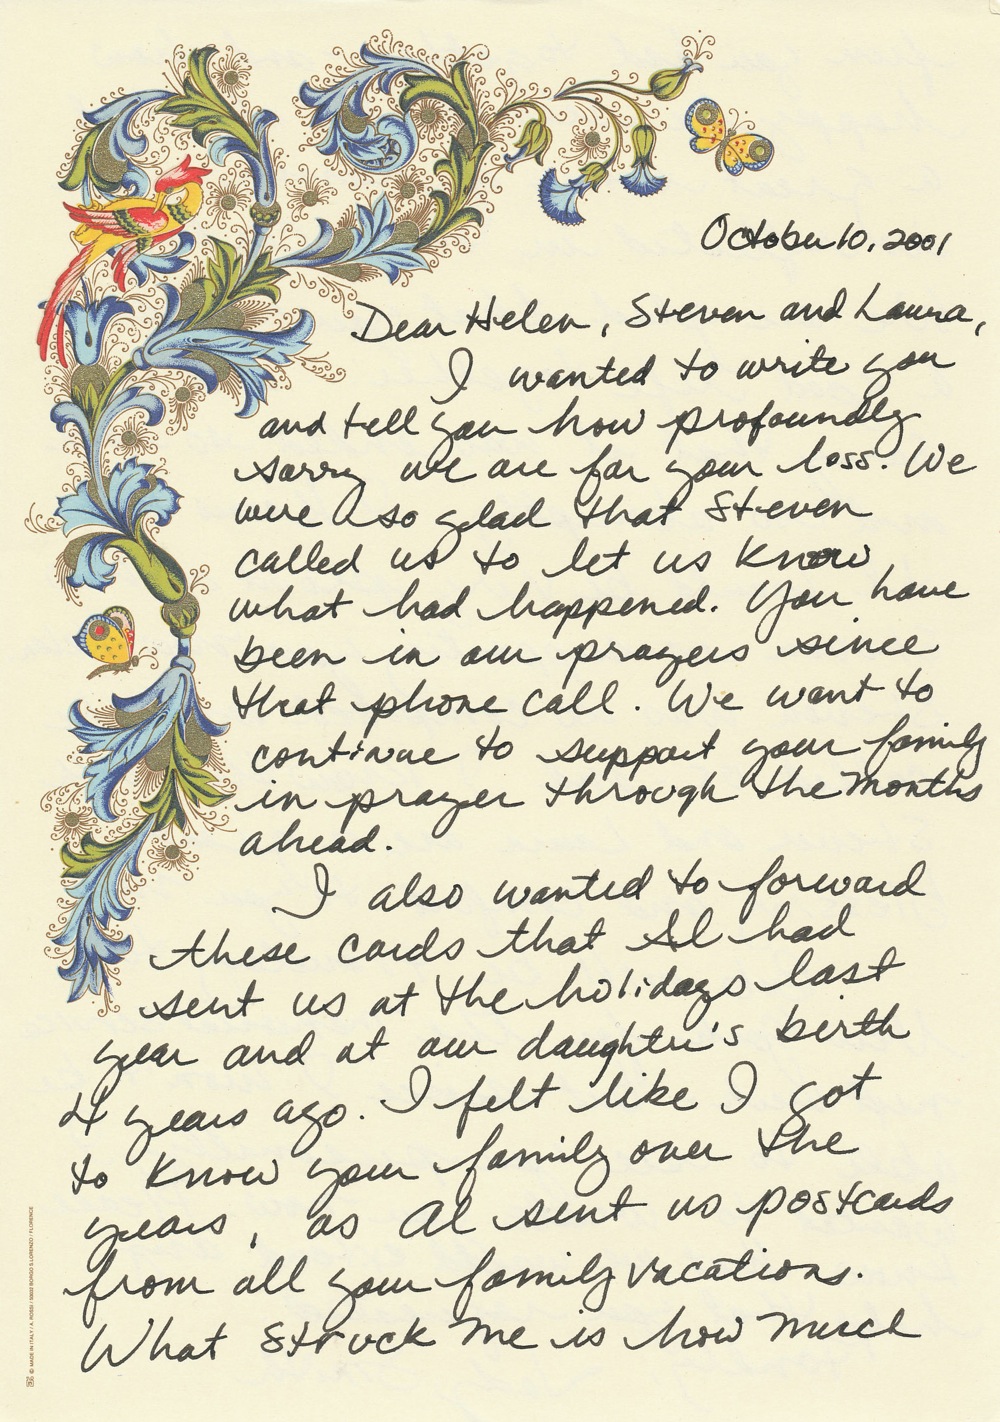 October 10, 2001
Dear Helen, Steven and Laura,
I wanted to write you
and tell you how profoundly
sorry we are for your loss. We
were so glad that Steven
called us to let us know
what had happened. You have
been in our prayers since
that phone call. We want to
continue to support your family
in prayer through the months
ahead.
I also wanted to forward
these cards that Al had
sent us at the holidays last
year and at our daughter's birth
4 years ago. I felt like I got
to know your family over the
years, as Al sent us postcards
from all your family vacations.
What struck me is how much
© MADE IN ITALY / A. ROSSI / 50032 BORGO S. LORENZO / FLORENCE